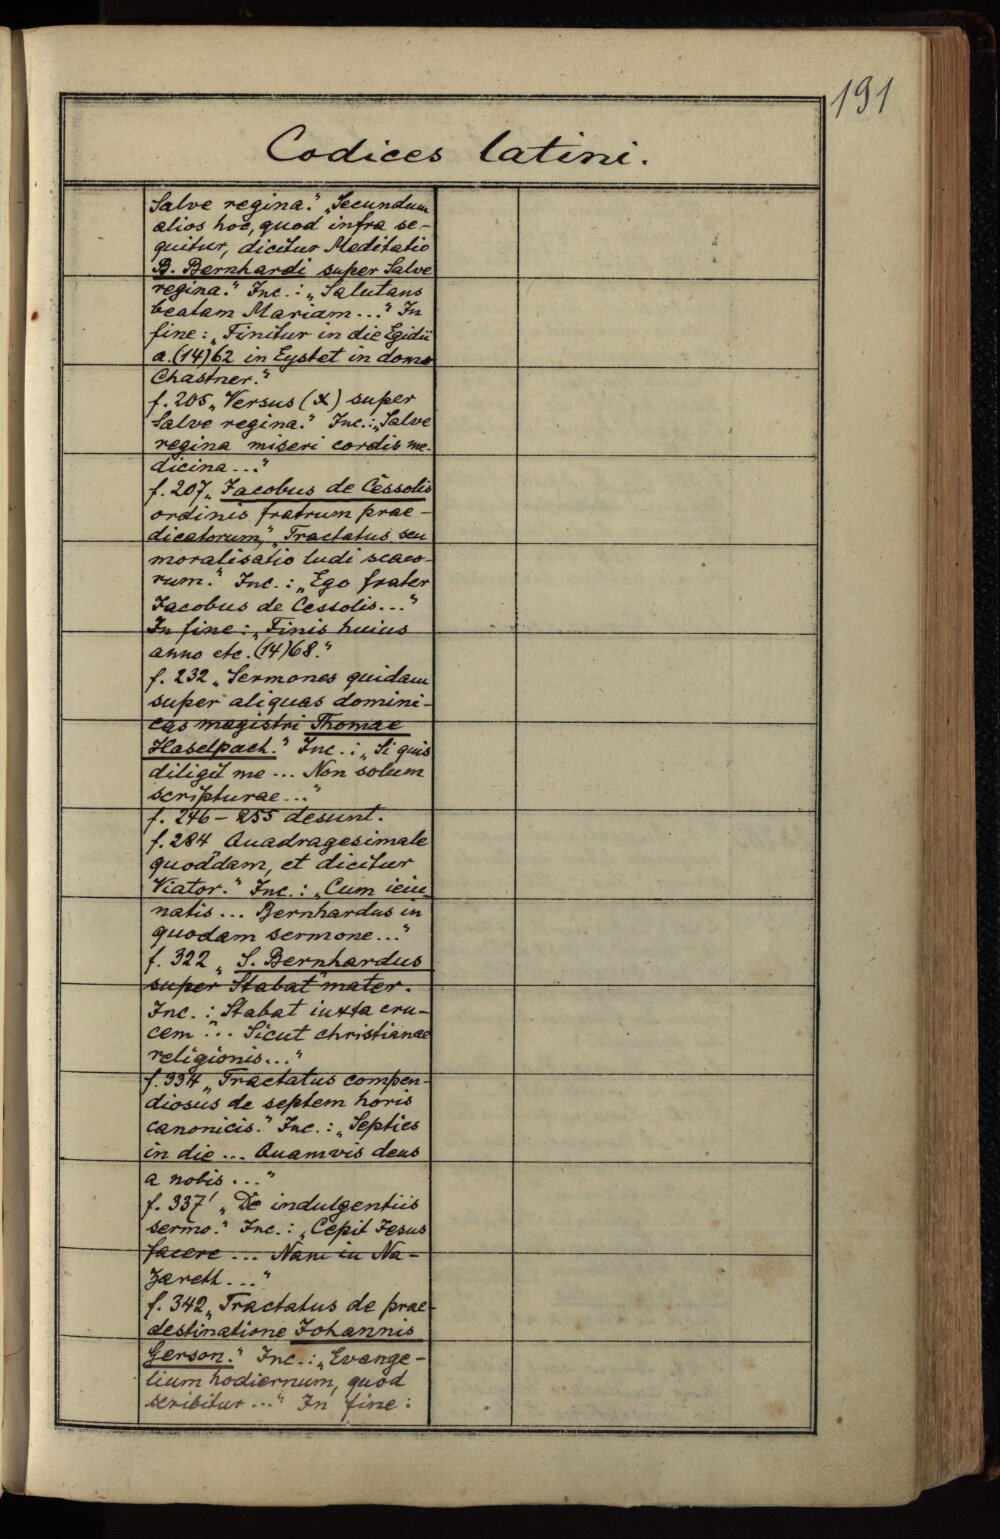 191
Codices latini.
Salve regina." „Secundum
alios hoc, quod infra se-
quitur, dicitur Meditatio
B. Bernhardi super Salve
regina." Inc.: „Salutans
beatam Mariam..." In
fine: „Finitur in die Egidii
a. (14)62 in Eystet in domo
Chastner."
f. 205 „Versus (X) super
Salve regina." Inc.: „Salve
regina miseri cordis me-
dicina..."
f. 207 „Jacobus de Cessolis
ordinis fratrum prae-
dicatorum," „Tractatus seu
moralisatio ludi scaco-
rum." Inc.: „Ego frater
Jacobus de Cessolis..."
In fine: „Finis huius
anno etc. (14)68."
f. 232 „Sermones quidam
super aliquas domini-
cas magistri Thomae
Haselpach." Inc.: „Si quis
diligit me... Non solum
scripturae..."
f. 246-255 desunt.
f. 284 „Quadragesimale
quoddam, et dicitur
Viator." Inc.: „Cum ieiu-
natis... Bernhardus in
quodam sermone..."
f. 322 „S. Bernhardus
super Stabat mater."
Inc.: „Stabat iuxta cru-
cem... Sicut christianae
religionis..."
f. 334 „Tractatus compen-
diosus de septem horis
canonicis." Inc.: „Septies
in die... Quamvis deus
a nobis..."
f. 337' „De indulgentiis
sermo." Inc.: „Cepit Jesus
facere... Nam in Na-
zareth..."
f. 342 „Tractatus de prae-
destinatione Johannis
Gerson." Inc.: „Evange-
lium hodiernum, quod
scribitur..." In fine: